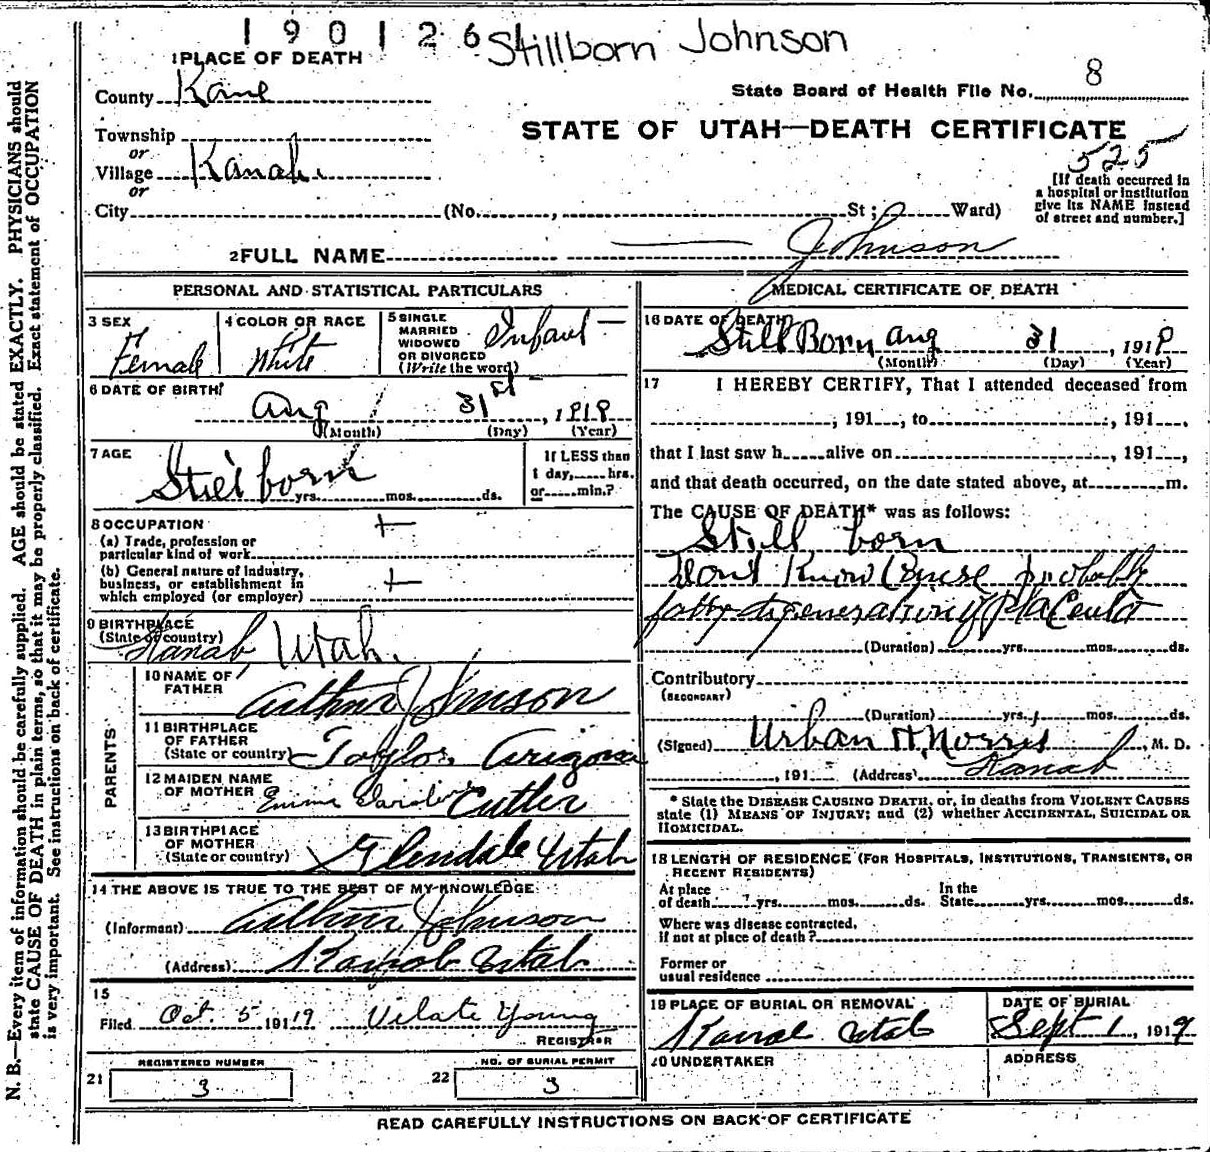 190126 Stillborn Johnson
1 PLACE OF DEATH
County Kane
State Board of Health File No. 8
Township
or
STATE OF UTAH—DEATH CERTIFICATE
525
Village Kanab.
or
City (No. , St; Ward)
[If death occurred in
a hospital or institution
give its NAME instead
of street and number.]
2 FULL NAME Johnson
PERSONAL AND STATISTICAL PARTICULARS
3 SEX
Female
4 COLOR OR RACE
White
5 SINGLE
MARRIED
WIDOWED
OR DIVORCED
(Write the word)
Infant —
6 DATE OF BIRTH
Aug 31st, 1919
(Month) (Day) (Year)
7 AGE
Still born
yrs. mos. ds.
If LESS than
1 day, hrs.
or min.?
8 OCCUPATION
(a) Trade, profession or
particular kind of work
(b) General nature of industry,
business, or establishment in
which employed (or employer)
9 BIRTHPLACE
(State or country)
Kanab, Utah.
PARENTS
10 NAME OF
FATHER
Arthur Johnson
11 BIRTHPLACE
OF FATHER
(State or country)
Taylor Arizona
12 MAIDEN NAME
OF MOTHER
Cutler
13 BIRTHPLACE
OF MOTHER
(State or country)
Glendale Utah
14 THE ABOVE IS TRUE TO THE BEST OF MY KNOWLEDGE
(Informant) Arthur Johnson
(Address) Kanab Utah
15
Filed Oct. 5 1919 Vilate Young
REGISTRAR
REGISTERED NUMBER
21 3
NO. OF BURIAL PERMIT
22 3
MEDICAL CERTIFICATE OF DEATH
16 DATE OF DEATH
Still Born Aug 31, 1919
(Month) (Day) (Year)
17 I HEREBY CERTIFY, That I attended deceased from
, 191 , to , 191 ,
that I last saw h alive on , 191 ,
and that death occurred, on the date stated above, at m.
The CAUSE OF DEATH* was as follows:
Still born
Dont Know Cause probably
fatty degeneration of Placenta
(Duration) yrs. mos. ds.
Contributory
(SECONDARY)
(Duration) yrs. mos. ds.
(Signed) Urban H. Norris, M. D.
, 191 (Address) Kanab
* State the DISEASE CAUSING DEATH, or, in deaths from VIOLENT CAUSES
state (1) MEANS OF INJURY; and (2) whether ACCIDENTAL, SUICIDAL OR
HOMICIDAL.
18 LENGTH OF RESIDENCE (FOR HOSPITALS, INSTITUTIONS, TRANSIENTS, OR
RECENT RESIDENTS)
At place
of death yrs. mos. ds.
In the
State yrs. mos. ds.
Where was disease contracted,
if not at place of death?
Former or
usual residence
19 PLACE OF BURIAL OR REMOVAL
Kanab Utah
DATE OF BURIAL
Sept 1, 1919
20 UNDERTAKER
ADDRESS
READ CAREFULLY INSTRUCTIONS ON BACK OF CERTIFICATE
N. B.—Every item of information should be carefully supplied. AGE should be stated EXACTLY. PHYSICIANS should
state CAUSE OF DEATH in plain terms, so that it may be properly classified. Exact statement of OCCUPATION
is very important. See instructions on back of certificate.